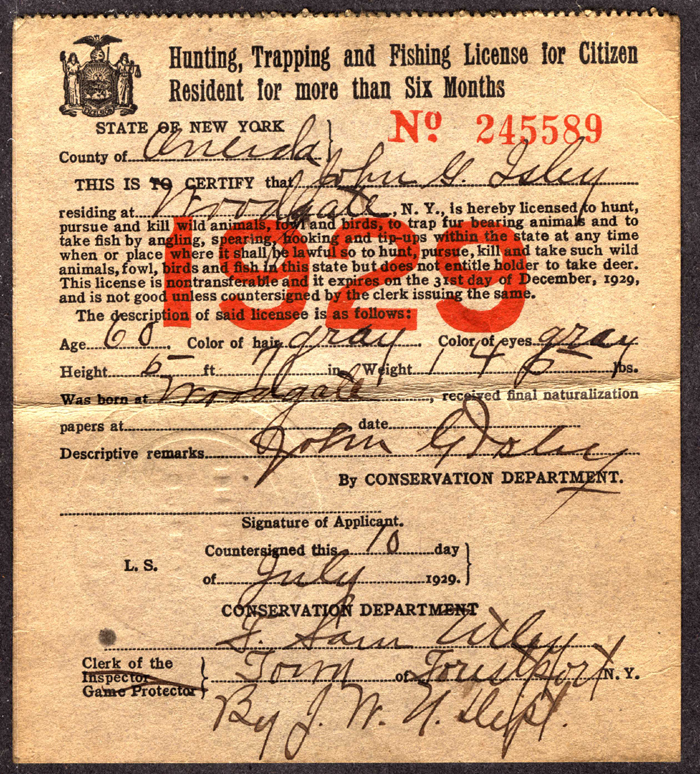 Hunting, Trapping and Fishing License for Citizen
Resident for more than Six Months
STATE OF NEW YORK
No 245589
County of Oneida
THIS IS TO CERTIFY that John G. Isley
residing at Woodgate, N. Y., is hereby licensed to hunt,
pursue and kill wild animals, fowl and birds, to trap fur bearing animals and to
take fish by angling, spearing, hooking and tip-ups within the state at any time
when or place where it shall be lawful so to hunt, pursue, kill and take such wild
animals, fowl, birds and fish in this state but does not entitle holder to take deer.
This license is nontransferable and it expires on the 31st day of December, 1929,
and is not good unless countersigned by the clerk issuing the same.
1929
The description of said licensee is as follows:
Age 60. Color of hair gray Color of eyes gray
Height 5 ft in. Weight 145 lbs.
Was born at Woodgate, received final naturalization
papers at date
Descriptive remarks John G Isley
By CONSERVATION DEPARTMENT.
Signature of Applicant.
L. S.
Countersigned this 10 day
of July 1929.
CONSERVATION DEPARTMENT
F. Sam Utley
Clerk of the
Inspector
Game Protector
Town of Forestport N. Y.
By J. W. U. Dept.